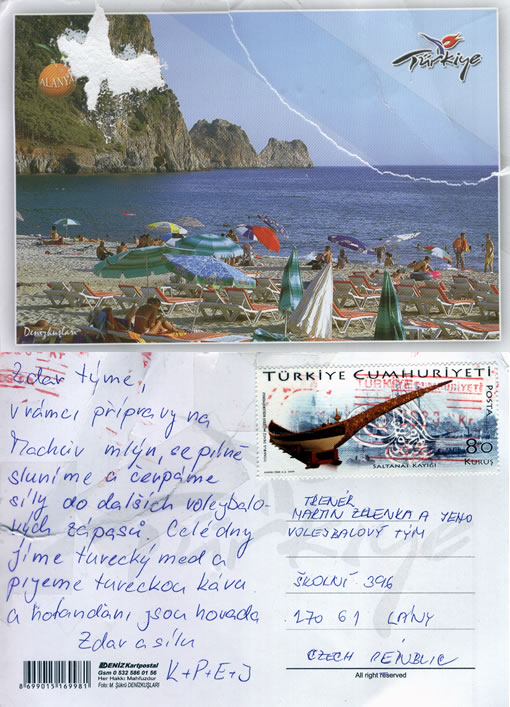 ALANYA
Türkiye
Denizkuşları
Zdar týme,
v rámci přípravy na
Máchův mlýn, se pilně
sluníme a čerpáme
síly do dalších volejbalo-
vých zápasů. Celé dny
jíme turecký med a
pijeme tureckou kávu
a hotandáni jsou hovada
Zdar a sílu
K+P+E+J
TÜRKİYE CUMHURİYETİ
POSTA
80
KURUŞ
SALTANAT KAYIĞI
TRENÉR
MARTIN ZELENKA A JEHO
VOLEJBALOVÝ TÝM
ŠKOLNÍ 396
270 61 LÁNY
CZECH REPUBLIC
DENİZKartpostal
Gsm 0 532 586 01 56
Her Hakkı Mahfuzdur
Foto: M. Şükrü DENİZKUŞLARI
8699015169981
All right reserved